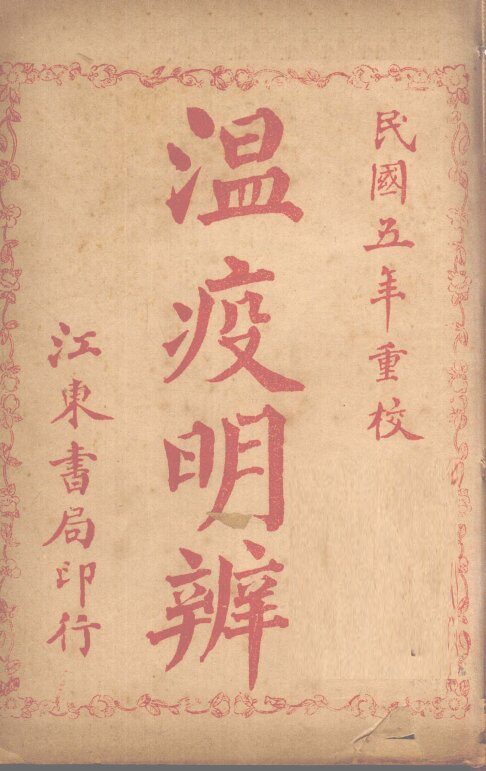 民國五年重校
温疫明辨
江東書局印行